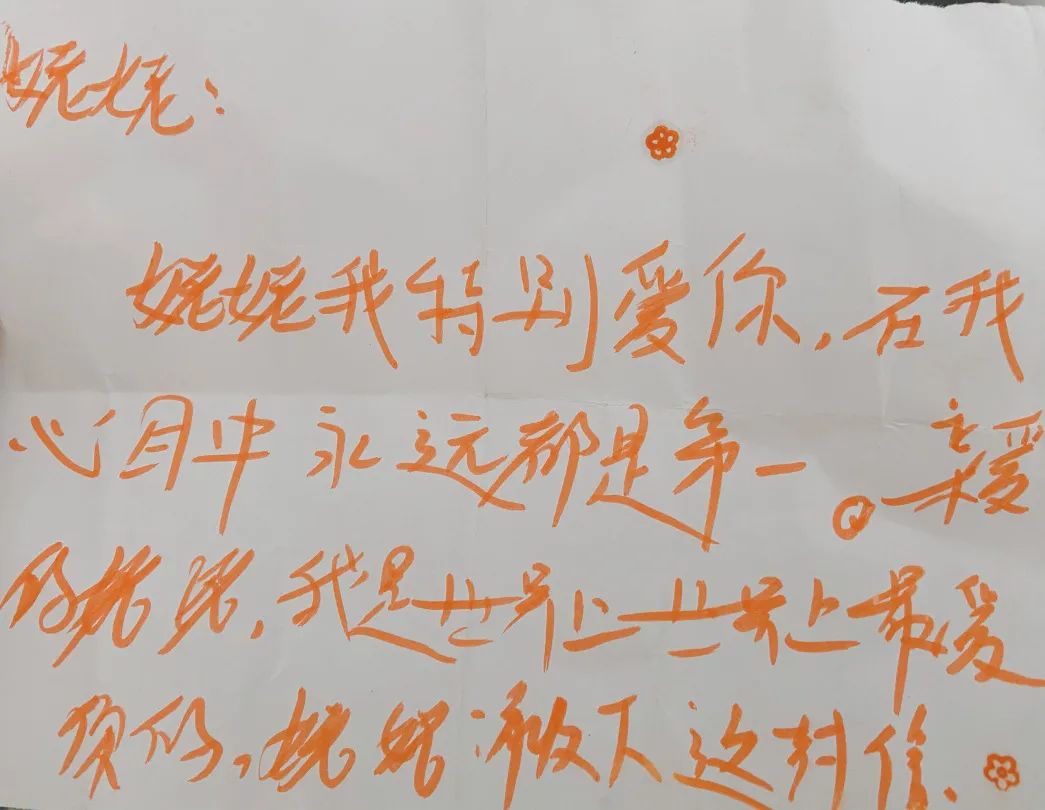 姥姥：
姥姥我特别爱你，在我
心目中永远都是第一。亲爱
的姥姥，我是世界上世界上最爱
你的，姥姥收下这封信.